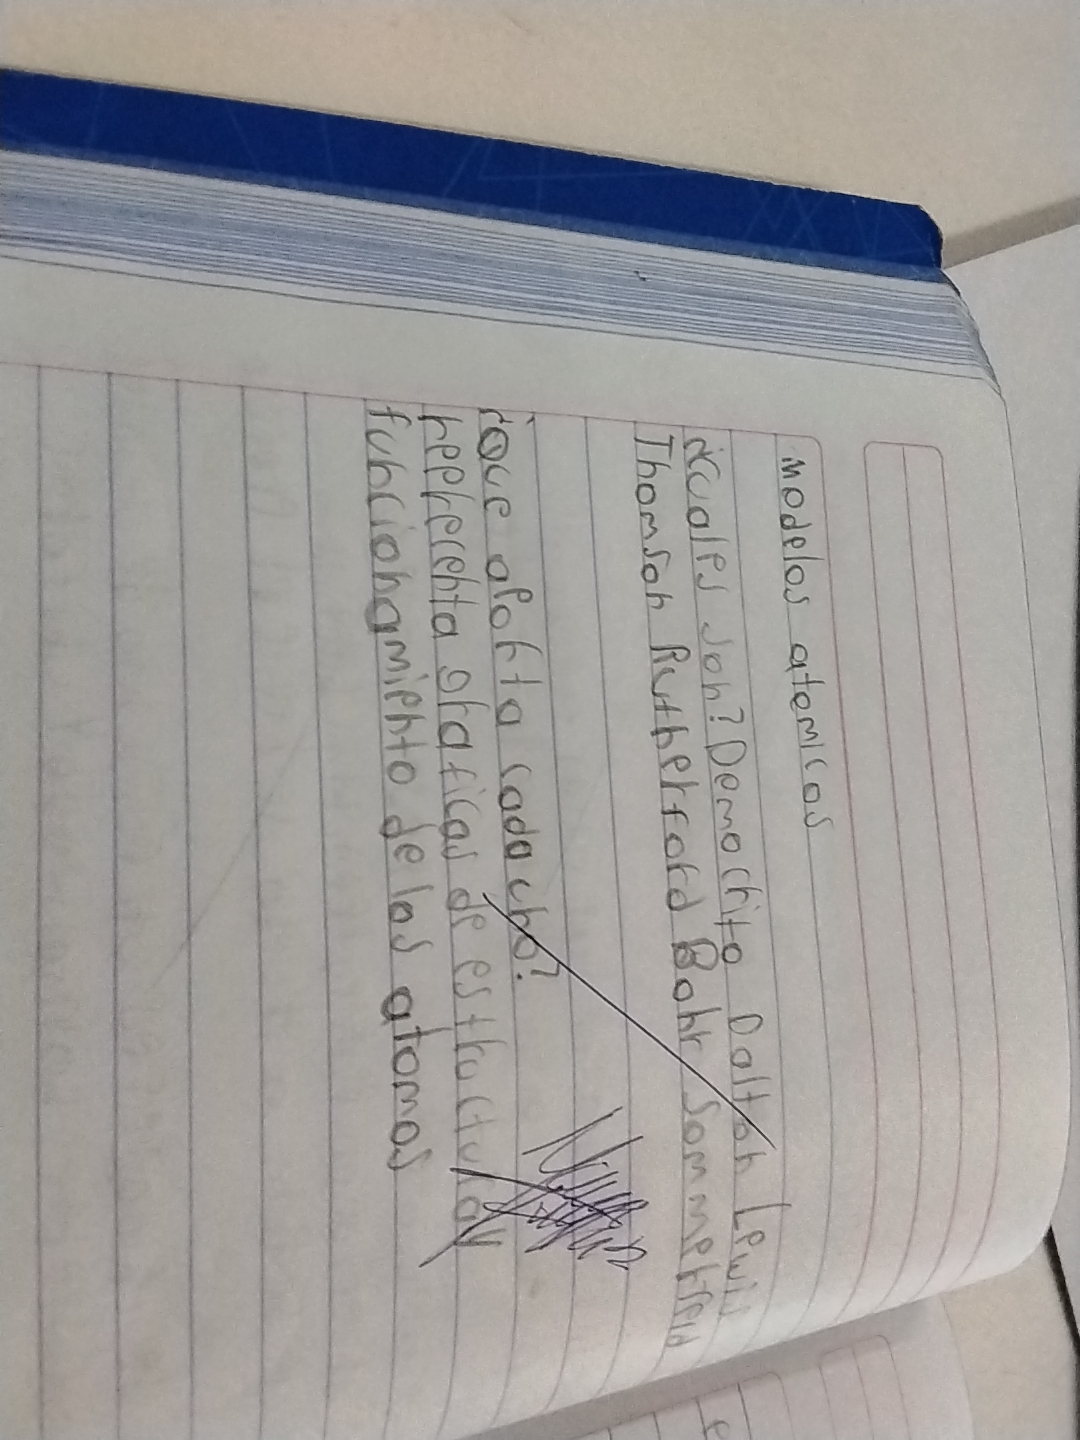 Modelos atomicos
¿cuales son? Demochito Dalton Lewis
Thomson Rutherford Bohr Sommerfeld
¿Que aporta cada uno?
representa graficas de estructura y
funcionamiento de los atomos